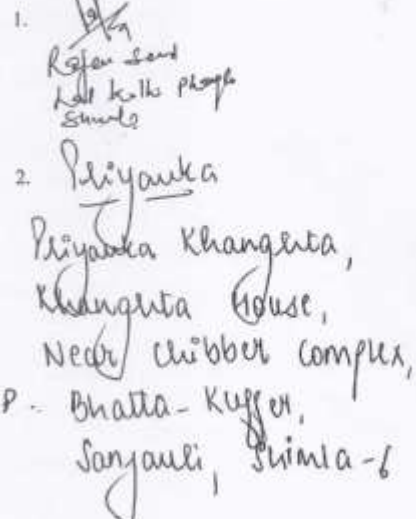 1.
Rajan Sood
Lal Kothi Phagli
Shimla
2. Priyanka
Priyanka Khanghta,
Khanghta House,
Near Chibber Complex,
P. Bhatta-Kuffer,
Sanjauli, Shimla-6